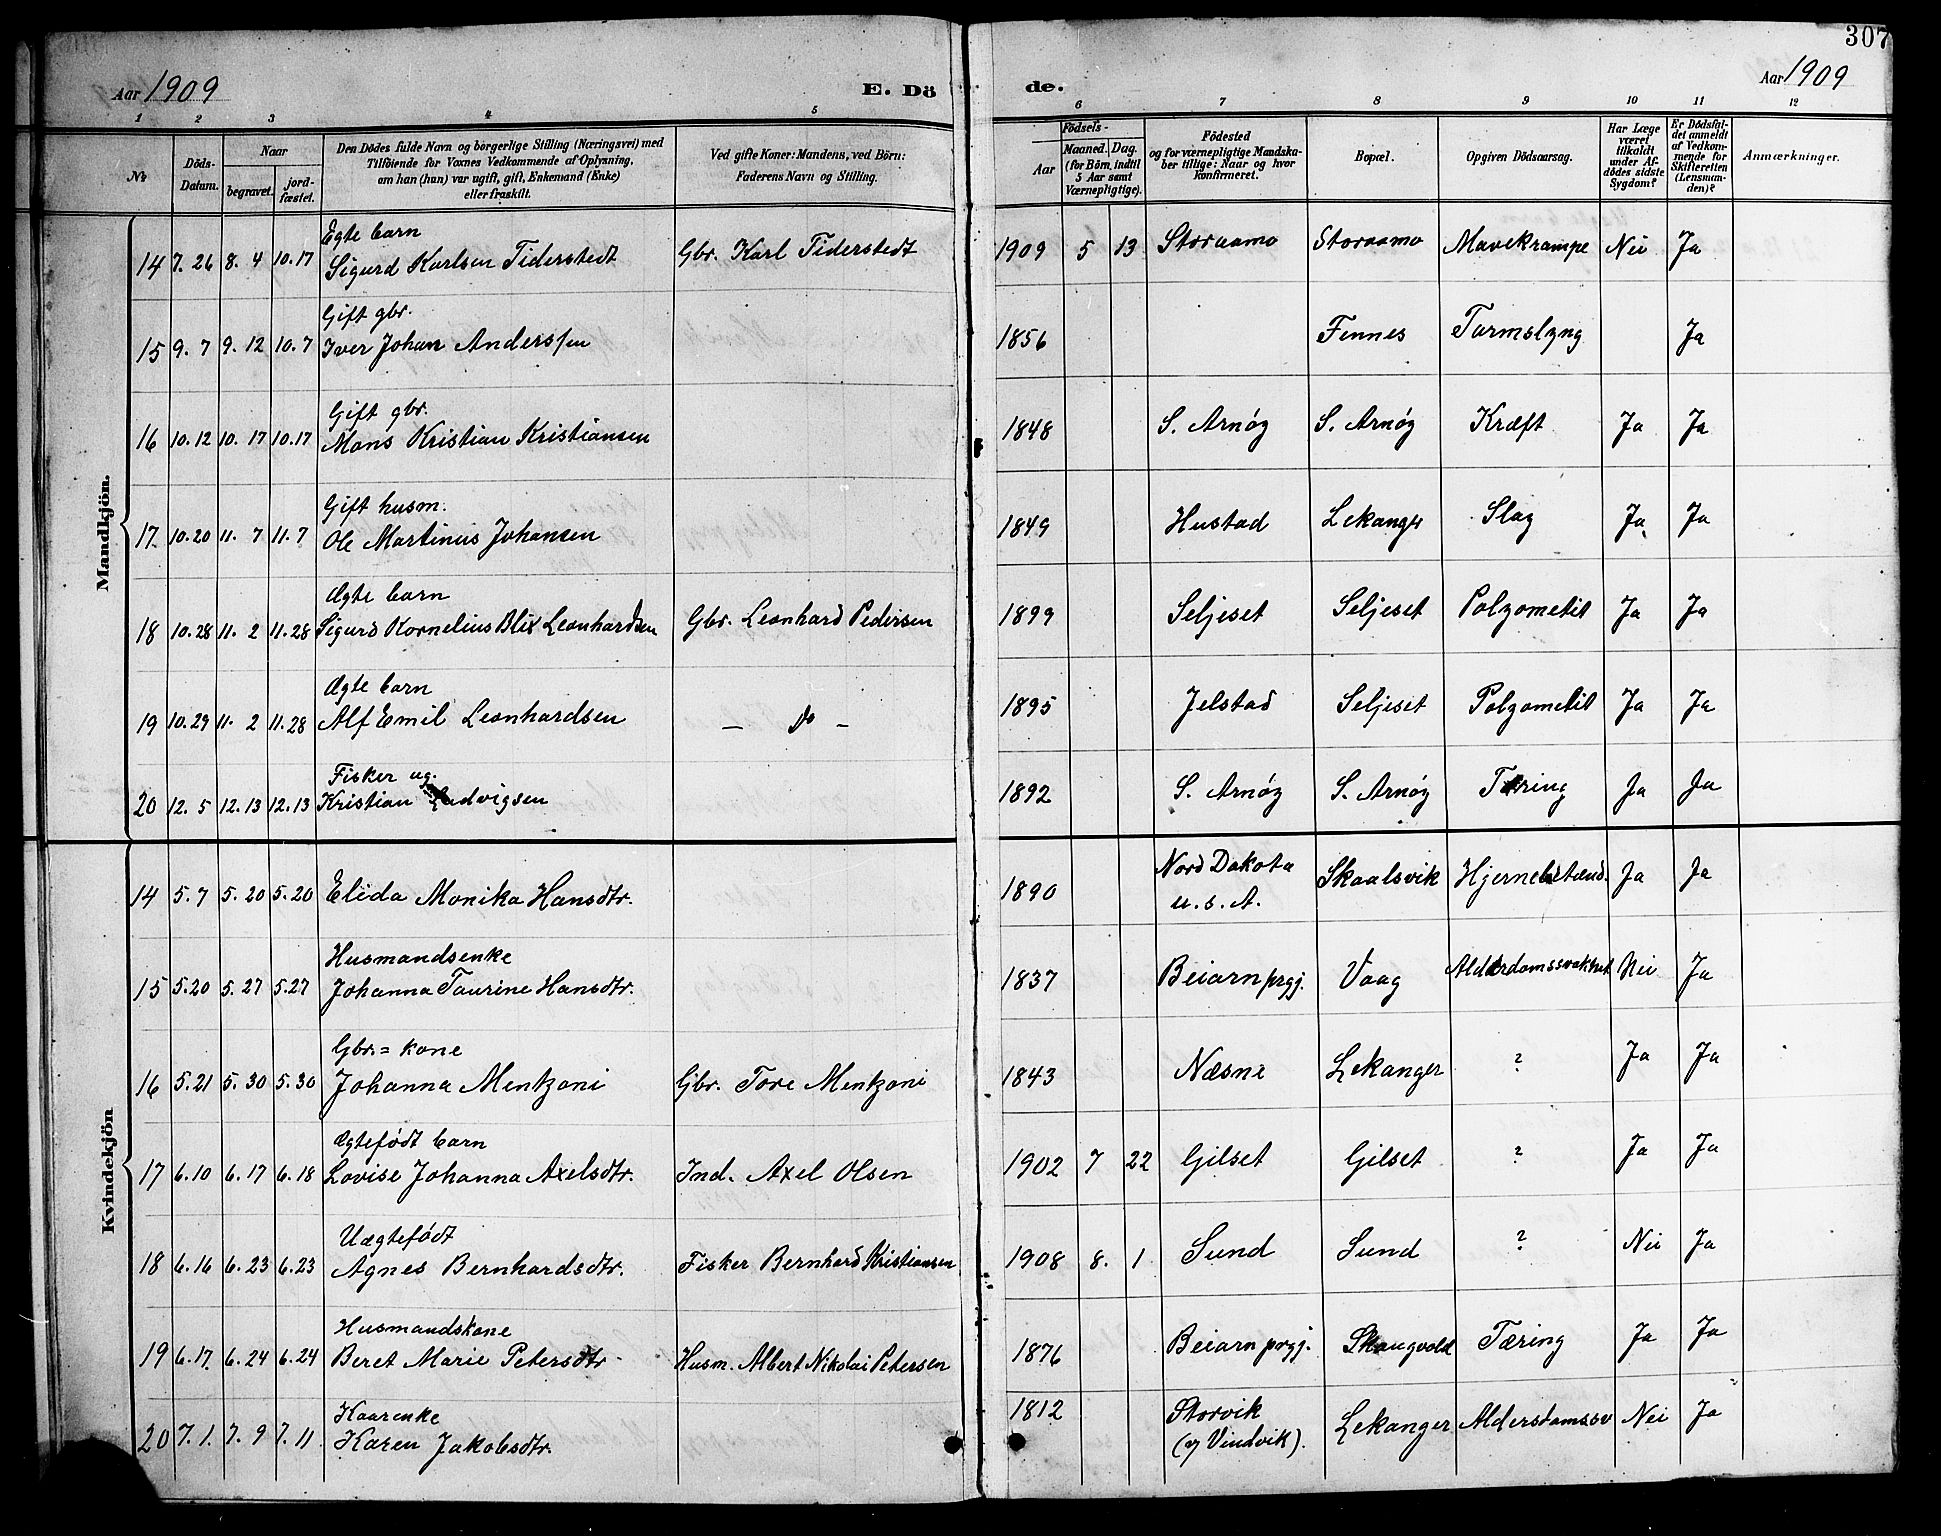 307
Aar 1909
E. Dö
de.
Aar 1909
1 2 3 4 5 6 7 8 9 10 11 12
No
Döds-Datum.
Naar
begravet.
jord-fæstet.
Den Dödes fulde Navn og borgerlige Stilling (Næringsvei) med
Tilföiende for Voxnes Vedkommende af Oplysning,
om han (hun) var ugift, gift, Enkemand (Enke)
eller fraskilt.
Ved gifte Koner: Mandens, ved Börn:
Faderens Navn og Stilling.
Födsels-
Aar
Maaned. Dag.
(for Börn indtil
5 Aar samt
Værnepligtige).
Födested
og for værnepligtige Mandska-
ber tillige: Naar og hvor
konfirmeret.
Bopæl.
Opgiven Dödsaarsag.
Har Læge
været
tilkaldt
under Af-
dödes sidste
Sygdom?
Er Dödsfal-
det anmeldt
af Vedkom-
mende for
Skifteretten
(Lensman-
den)?
Anmærkninger.
Mandkjön.
Egte barn
14 7.26 8. 4 10.17 Sigurd Karlsen Tiderstedt Gbr. Karl Tiderstedt 1909 5 13 Storaamo Storaamo Mavekrampe Nei Ja
Gift gbr.
15 9. 7 9. 12 10.7 Iver Johan Anderssen 1856 Finnes Tarmslyng Ja
Gift gbr.
16 10.12 10. 17 10.17 Mons Kristian Kristiansen 1848 S. Arnøy S. Arnøy Kræft Ja Ja
Gift husm.
17 10.20 11. 7 11. 7 Ole Martinus Johansen 1849 Hustad Lekanger Slag Ja Ja
Ægte barn
18 10.28 11. 2 11.28 Sigurd Kornelius Blix Leonhardsen Gbr. Leonhard Pedersen 1899 Seljeset Seljeset Polyometit Ja Ja
Ægte barn
19 10.29 11. 2 11.28 Alf Emil Leonhardsen — Do — 1895 Jelstad Seljeset Polyometit Ja Ja
Fisker ug.
20 12. 5 12.13 12.13 Kristian Ludvigsen 1892 S. Arnøy S. Arnøy Tæring Ja Ja
Kvindekjön
14 5.7 5. 20 5.20 Elida Monika Hansdtr. 1890 Nord Dakota u. s. A. Skaalsvik Hjernebetænd. Ja Ja
Husmandsenke
15 5.20 5. 27 5.27 Johanna Taurine Hansdtr. 1837 Beiarn prgj. Vaag Alderdomssvakhet Nei Ja
Gbr.= kone
16 5.21 5. 30 5.30 Johanna Mentzoni Gbr. Tore Mentzoni 1843 Næsne Lekanger ? Ja Ja
Ægtefødt barn
17 6.10 6. 17 6.18 Lovise Johanna Axelsdtr. Ind. Axel Olsen 1902 7 22 Gilset Gilset ? Ja Ja
Uægtefødt
18 6.16 6. 23 6.23 Agnes Bernhardsdtr. Fisker Bernhard Kristiansen 1908 8. 1 Sund Sund ? Nei Ja
Husmandskone
19 6.17 6. 24 6.24 Beret Marie Petersdtr Husm. Albert Nikolai Petersen 1876 Beiarn prgj. Skaugvold Tæring Ja Ja
Kaarenke
20 7.1. 7. 9 7. 11 Karen Jakobsdtr. 1812 Storvik (v/ Vindvik). Lekanger Alderdomssv Nei Ja